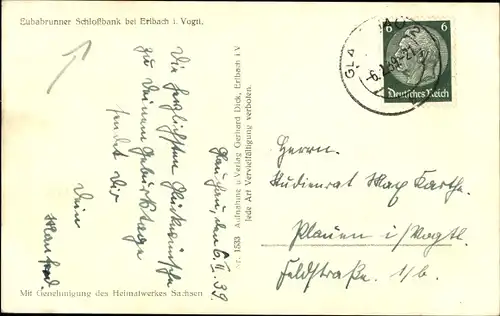 Eubabrunner Schloßbank bei Erlbach i. Vogtl.
Glauchau, den 6. II. 39.
Die herzlichsten Glückwünsche
zu Deinem Geburtstage
sendet Dir
Dein
Manfred.
Mit Genehmigung des Heimatwerkes Sachsen
Nr. 1533 Aufnahme u. Verlag Gerhard Dick, Erlbach i. V.
Jede Art Vervielfältigung verboten.
6 6
Deutsches Reich
-6.2.39.-21
Herrn
Studienrat Max Barthe
Plauen i/Vogtl.
Feldstraße 1/b.